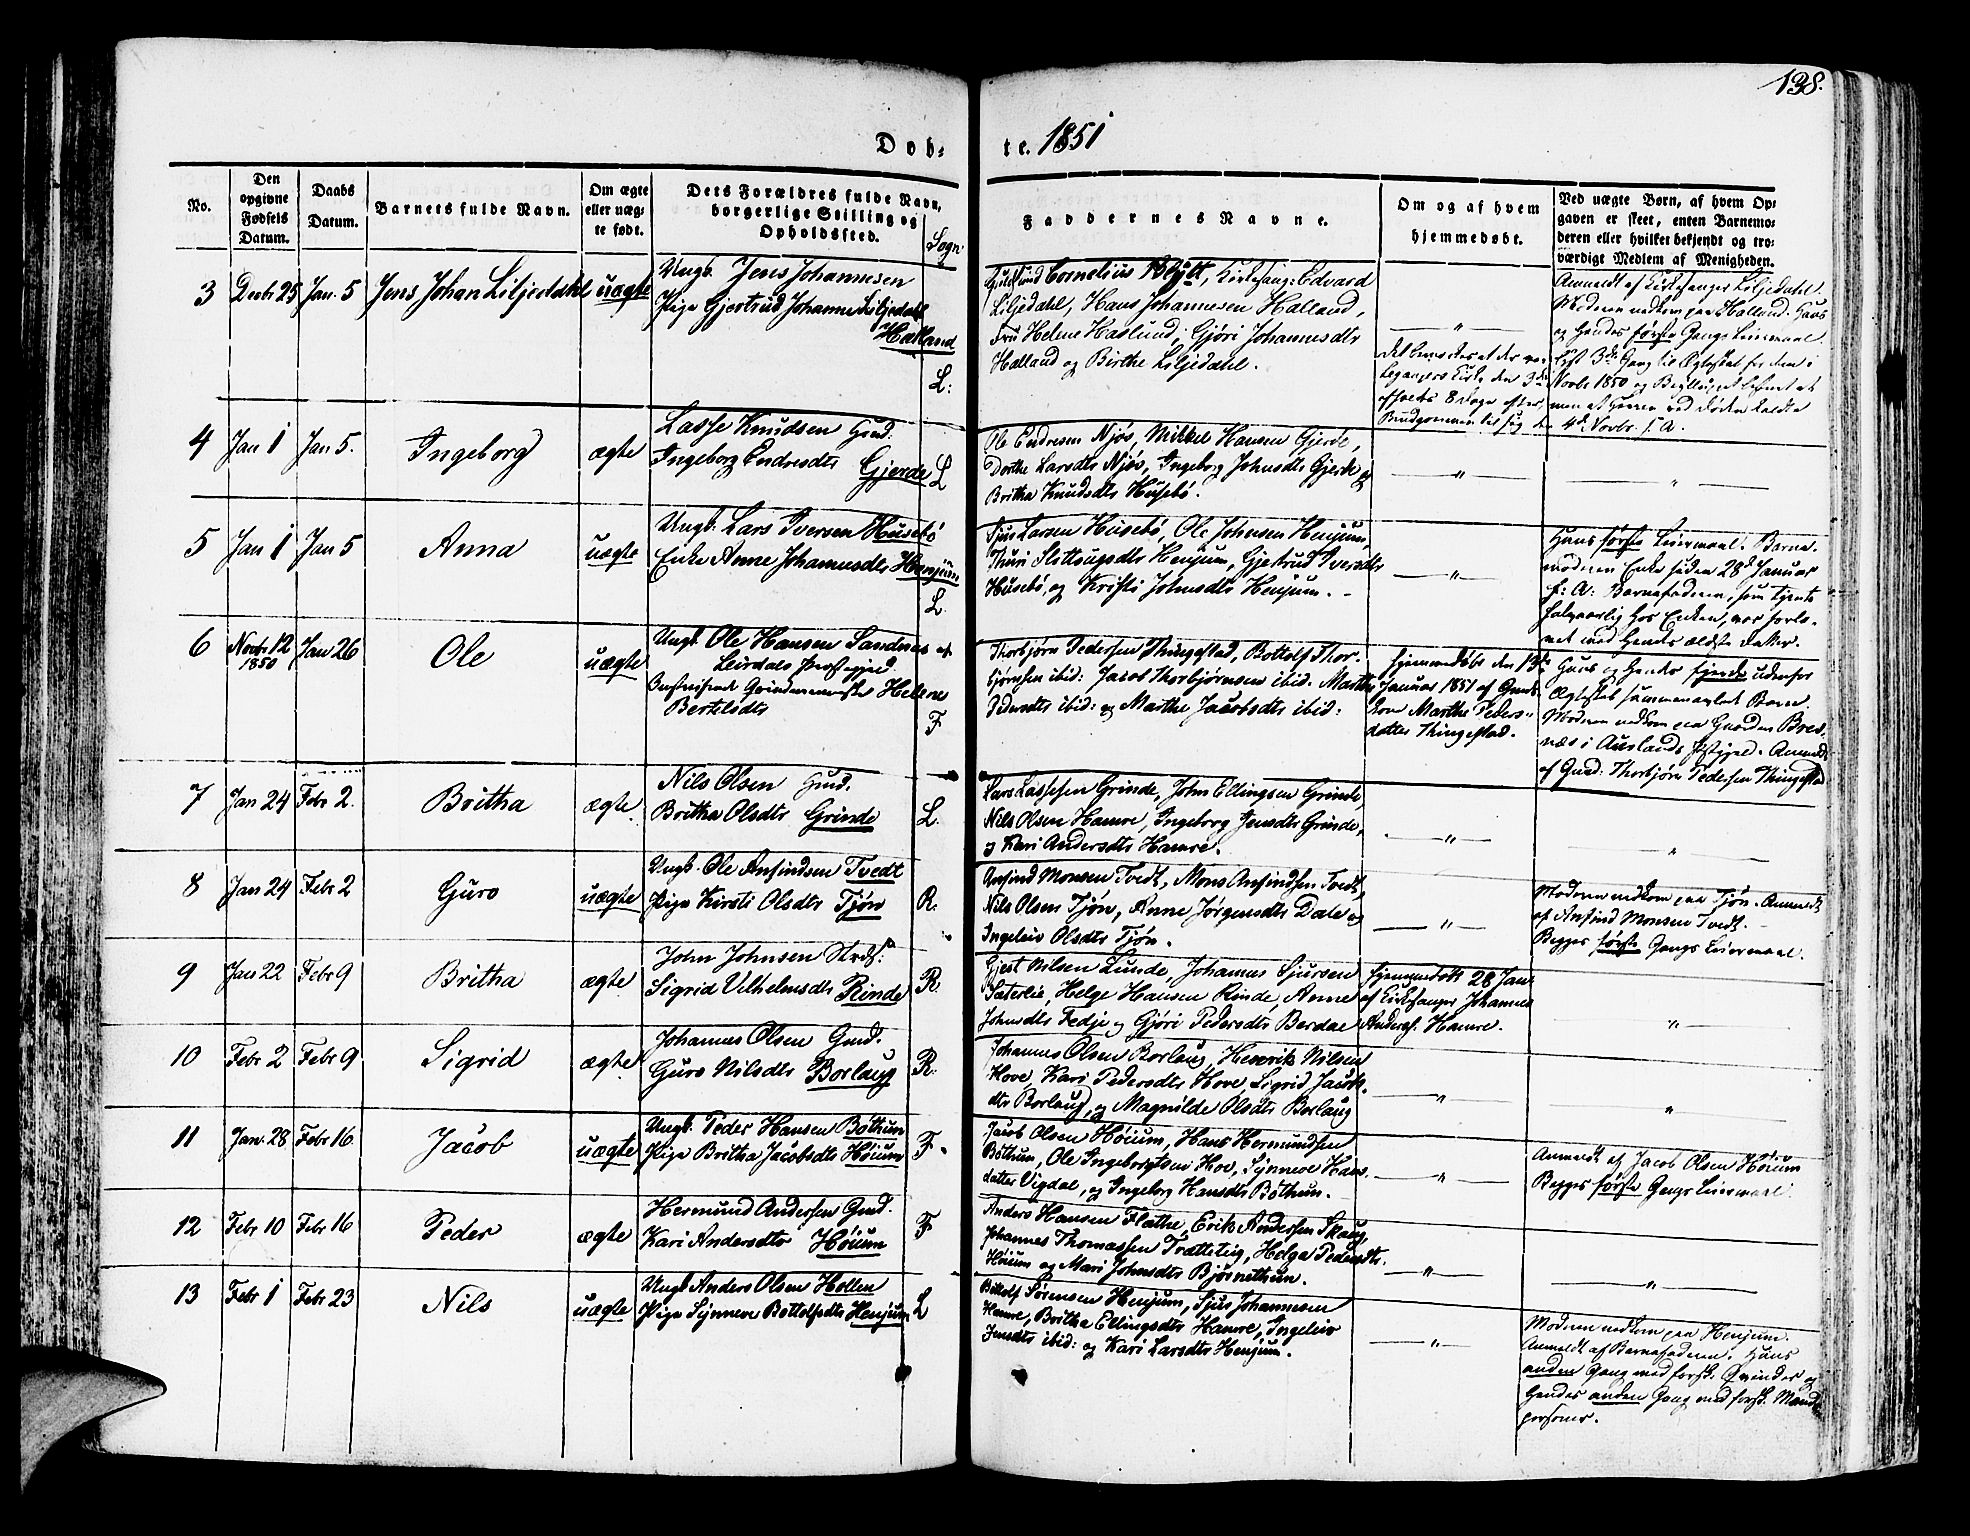 138.
Døb- te. 1851
No.
Den opgivne Fødsels Datum.
Daabs Datum.
Barnets fulde Navn.
Om ægte eller uægte født.
Dets Forældres fulde Navn, borgerlige Stilling og Opholdssted.
Sogn.
Faddernes Navne.
Om og af hvem hjemmedøbt.
Ved uægte Børn, af hvem Opgaven er skeet, enten Barnemoderen eller hvilket bekjendt og troværdigt Medlem af Menigheden.
3 Decbr 25 Jan. 5 Jens Johan Liljedahl uægte
Ungk. Jens Johannesen
Pige Gjertrud Johanne Liljedahl
Halland
L:
Cornelius Blytt, Kirkesang. Edvard
Liljedahl, Hans Johannesen Halland,
Fru Helene Haslund, Gjøri Johannesdtr
Halland og Birthe Liljedahl.
"
Anmeldt af Kirkesanger Liljedahl.
Moderen nedkom paa Halland. Hans
og Hendes første Gangs Leiermaal.
4 Jan 1 Jan 5. Ingeborg ægte
Lasse Knudsen Gmd.
Ingeborg Endresdtr Gjerde L
Ole Endresen Njøs, Mikkel Hansen Gjerde,
Dorthe Larsdtr Njøs, Ingeborg Johnsdtr Gjerde og
Britha Knudsdtr Husebø.
" "
5 Jan 1 Jan 5 Anna uægte
Ungk. Lars Iversen Husebø
Enke Anne Johannesdtr Henjum
L.
Sjur Larsen Husebø, Ole Johnsen Henjum,
Thuri Slittougsdtr Henjum, Gjertrud Iversdtr
Husebø, og Kristi Johnsdtr Henjum.
"
Hans første Leiermaal. Barne-
moderen Enke siden 28d Januar
f: A: Barnefaderen, som tjente
hos Enken, var forlo-
vet med Hendes ældste Datter.
6 Novbr 12 1850 Jan 26 Ole uægte
Ungk. Ole Hansen Sandnes af
Leirdals Præstegjed
Hellene
Bertelsdtr
F
Thorbjørn Pedersen Thingestad, Bottolf Thor-
bjørnsen ibid: Jacob Thorbjørnsen ibid. Marthe
Pedersdtr ibid: og Marthe Jacobsdtr ibid:
Hjemmedøbt den 13de
Januar 1851 af Gmds
kone Marthe Peders-
datter Thingestad.
Hans og Hendes fjerde udenfor
Ægteskab sammenavlet Barn.
Moderen nedkom paa Gaarden Bres-
næs i Aurlands Prstgjeld. Anmeldt
af Gmd: Thorbjørn Pedersen Thingestad
7 Jan 24 Febr 2. Britha ægte
Nils Olsen Gmd.
Britha Olsdtr Grinde
L.
Lars Lassesen Grinde, John Ellingsen Grinde,
Nils Olsen Hamre, Ingeborg Jensdtr Grinde,
og Kari Andersdtr Hamre.
" "
8 Jan 24 Febr 2 Guro uægte
Ungk. Ole Anfindsen Tvedt
Pige Kirsti Olsdtr Tjøn
R.
Anfind Monsen Tvedt, Mons Anfindsen Tvedt,
Nils Olsen Tjøn, Anne Jørgensdtr Dale og
Ingeleiv Olsdtr Tjøn.
"
Moderen nedkom paa Tjøn. Anmeldt
af Anfind Monsen Tvedt.
Begges første Gangs Leiermaal.
9 Jan 22 Febr 9 Britha ægte
John Johnsen
Sigrid Vilhelmsdtr Rinde
R.
Gjest Nilsen Lunde, Johannes Sjursen
Sæterlie, Helge Hansen Rinde, Anne
Johnsdtr Fedje og Gjøri Pedersdtr Berdae
Hjemmedøbt 28 Jan
af Kirkesanger Johannes
Anders. Hamre.
"
10 Febr 2 Febr 9 Sigrid ægte
Johannes Olsen Gmd.
Guro Nilsdtr Borlaug
R.
Johannes Olsen Borlaug, Henrik Nilsen
Hove, Kari Pedersdtr Hove, Sigrid Jacobs-
dtr Borlaug, og Magnilde Olsdtr Borlaug
" "
11 Jan. 28 Febr 16 Jacob uægte
Ungk. Peder Hansen Bøthum
Pige Britha Jacobsdtr Høium
F.
Jacob Olsen Høium, Hans Hermundsen
Bøthum, Ole Ingebrigtsen Hov, Synneve Hans-
datter Vigdal, og Ingeborg Hansdtr Bøthum.
"
Anmeldt af Jacob Olsen Høium
Begges første Gangs Leiermaal.
12 Febr 10 Febr 16 Peder ægte
Hermund Andersen Gmd.
Kari Andersdtr Høium
F
Anders Hansen Flathe, Erik Andersen Skaug,
Johannes Thomassen Trætteteig, Helga Pedersdtr.
Høium og Mari Johnsdtr Bjørnethun.
" "
13 Febr 1 Febr 23 Nils uægte
Ungk Anders Olsen Hollen
Pige Synneve Bottolfsdtr Henjum
L
Bottolf Sørensen Henjum, Sjur Johannesen
Hamre, Britha Ellingsdtr Hamre, Ingeleiv
Jensdtr ibid: og Kari Larsdtr Henjum.
"
Moderen nedkom paa Henjum.
Anmeldt af Barnefaderen. Hans
anden Gang med forsk. Qvinder og
Hendes anden Gang med forsk. Mands-
personer.